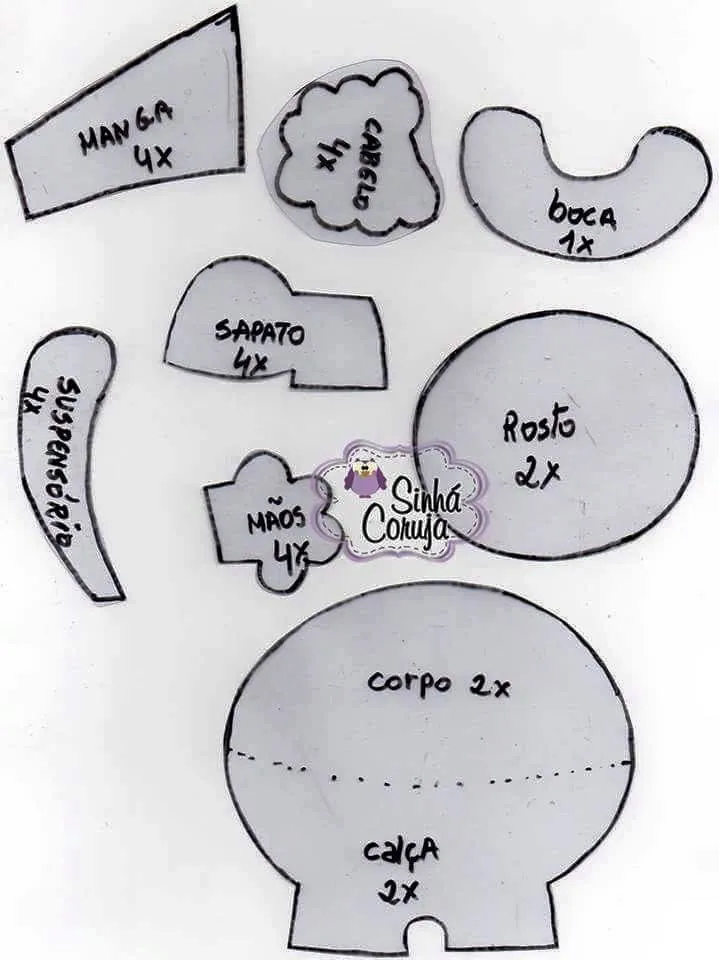 MANGA
4X
CABELO
4X
boca
1X
SAPATO
4X
SUSPENSÓRIO
4X
Rosto
2X
MÃOS
4X
Sinhá
Coruja
corpo 2x
calça
2X